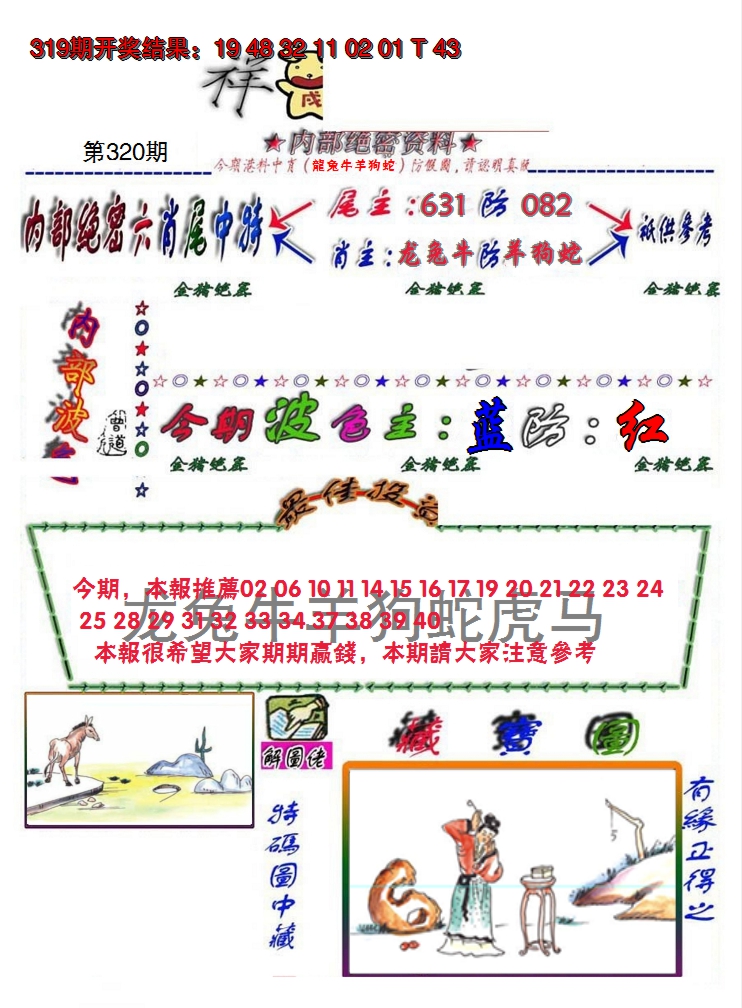 319期开奖结果：19 48 32 11 02 01 T 43
祥
戌
第320期
★内部绝密资料★
今期港料中肖（龍兔牛羊狗蛇）防假圖,請認明真版
内部绝密六肖尾中特
尾主:631 防 082
肖主:龙兔牛防羊狗蛇
祇供參考
金猪绝密 金猪绝密 金猪绝密
内部波
曾道
今期波色主:蓝防:红
金猪绝密 金猪绝密 金猪绝密
最佳投资
今期，本報推薦02 06 10 11 14 15 16 17 19 20 21 22 23 24
25 28 29 31 32 33 34 37 38 39 40
龙兔牛羊狗蛇虎马
本報很希望大家期期贏錢，本期請大家注意參考
解圖佬
藏寶圖
特碼圖中藏
有緣正得之